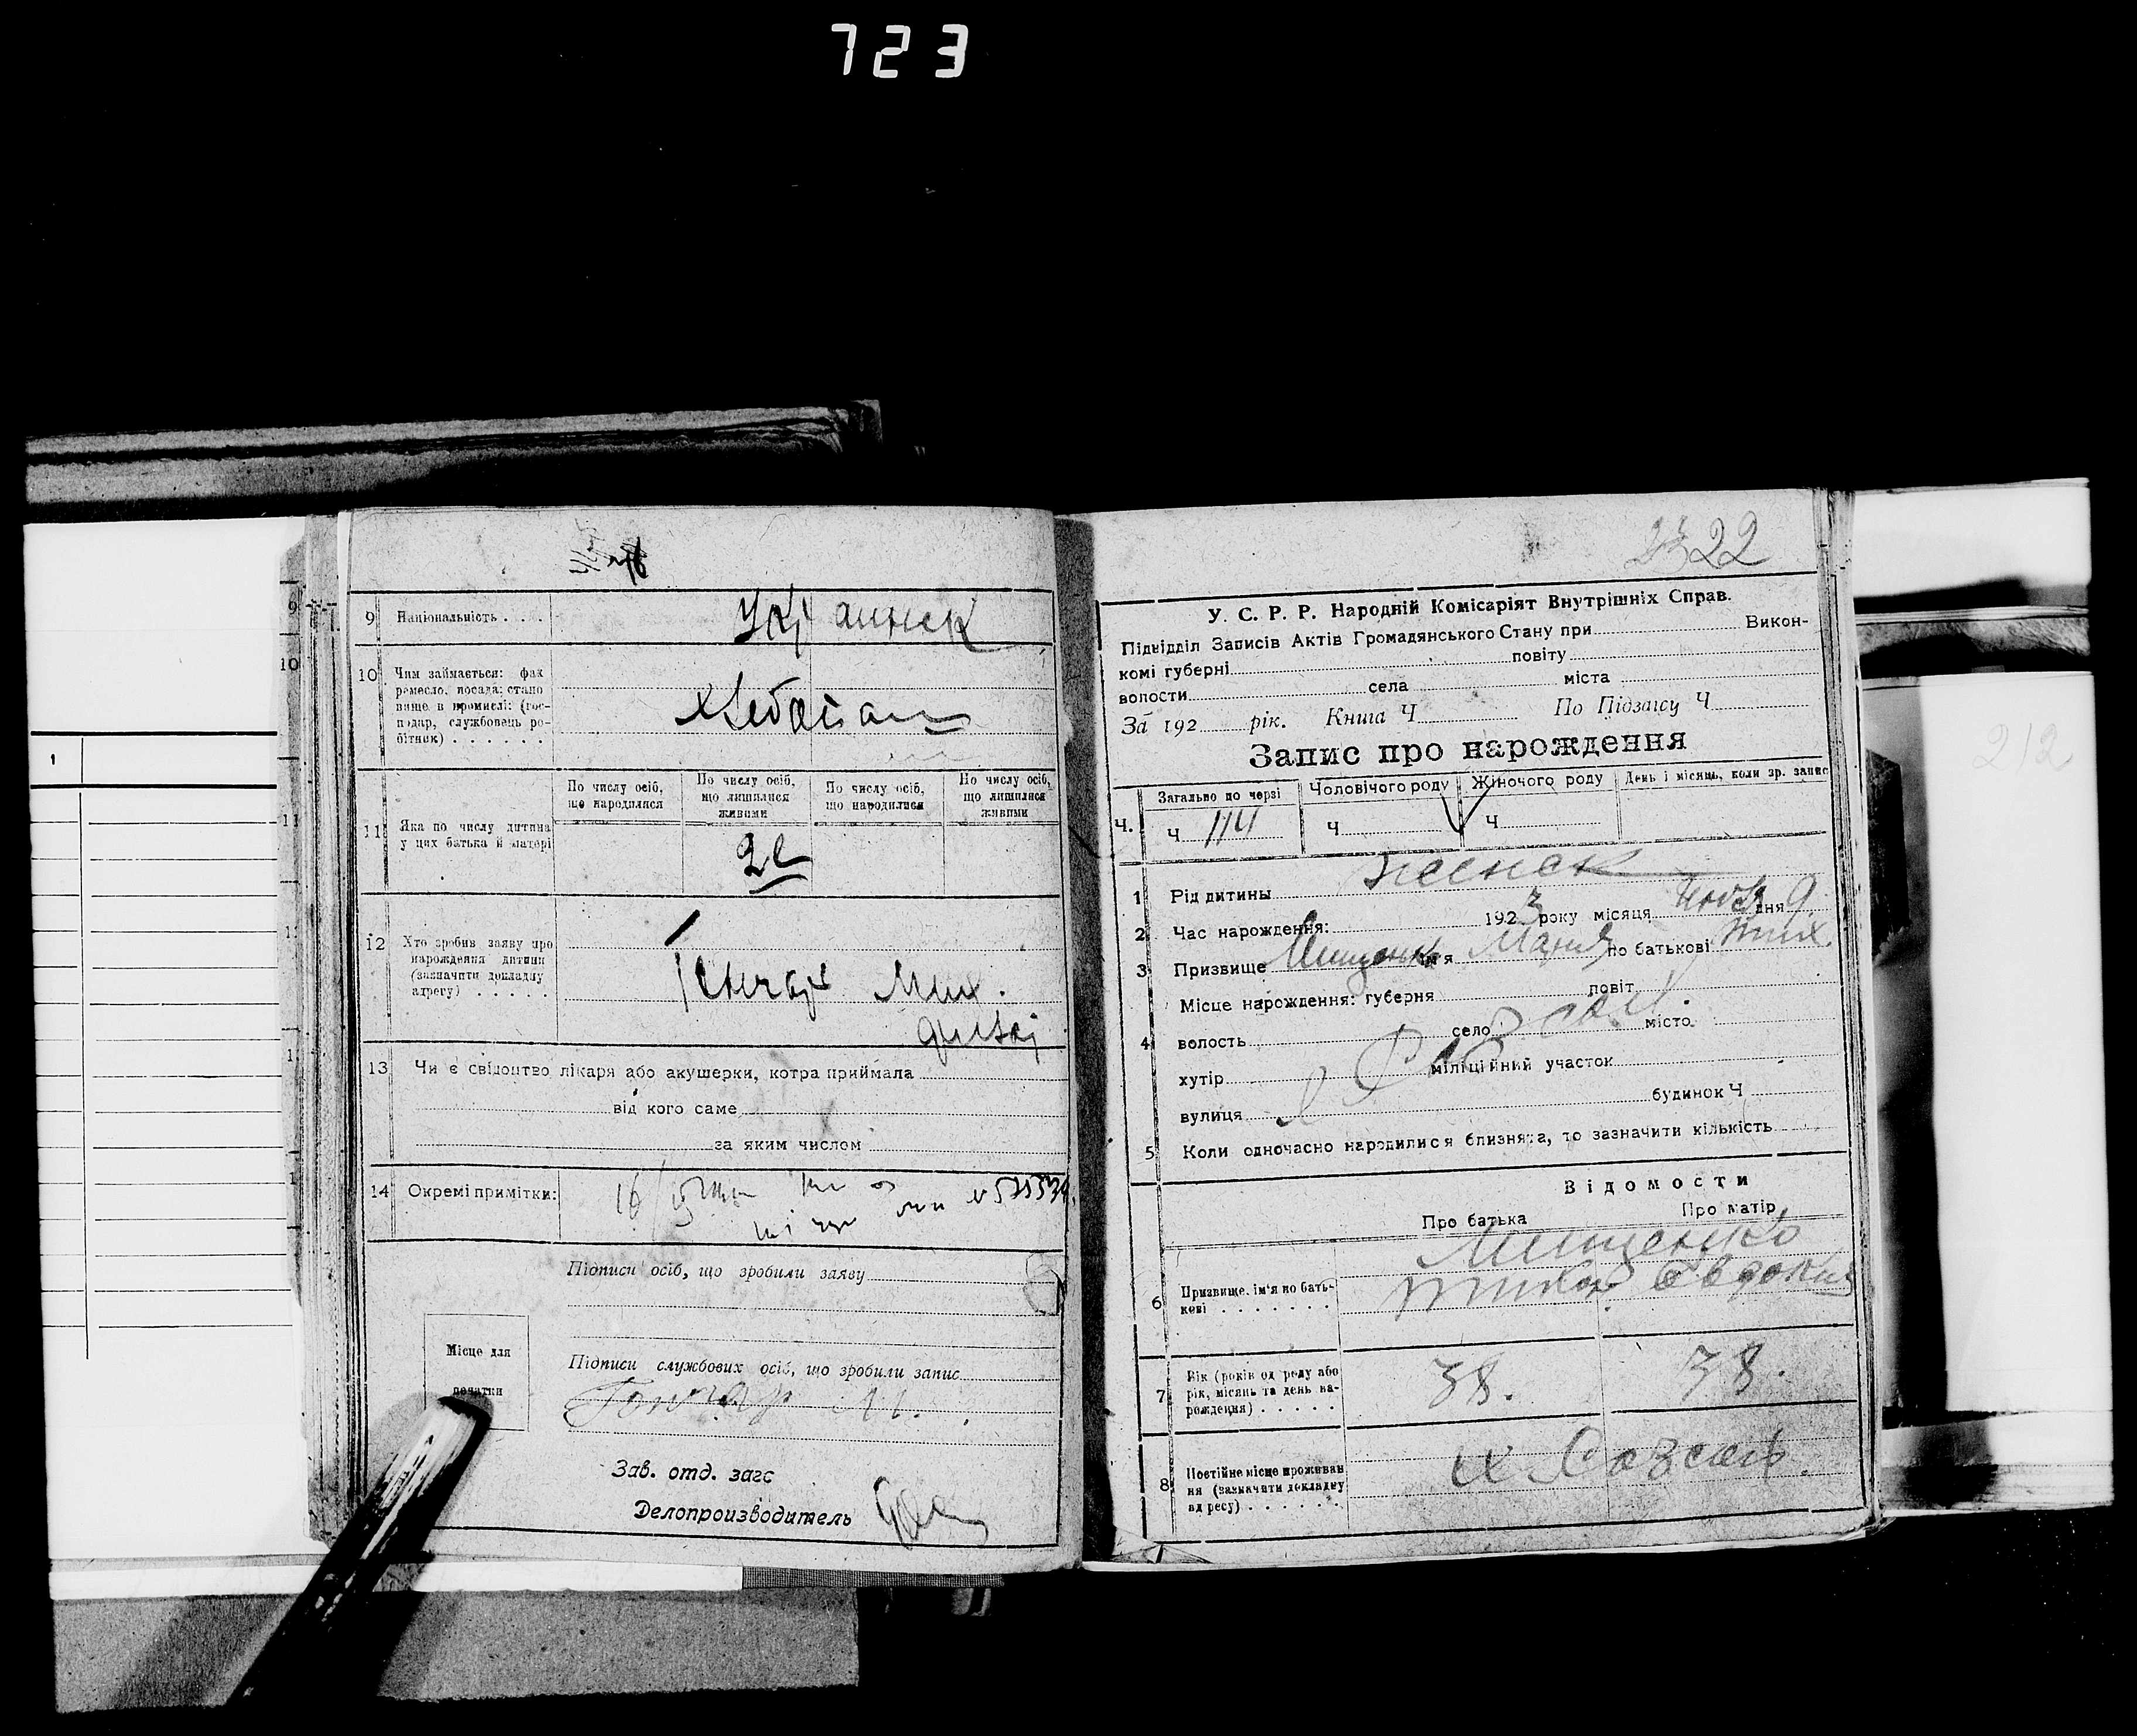 723
9 Національність . . . .
Украинск
10 Чим займається: фах
ремесло, посада: стано
вище в промислі: (гос-
подар, службовець ро-
бітник) . . . . . .
Хлебопаш
По числу осіб, що народилися
По числу осіб, що лишилися живими
По числу осіб, що народилися
По числу осіб, що лишилися живими
11 Яка по числу дитина
у цих батька й матері
2
12 Хто зробив заяву про
нарождення дитини
(зазначити докладну
адресу) . . . . .
13 Чи є свідоцтво лікаря або акушерки, котра приймала
від кого саме
за яким числом
14 Окремі примітки:
16/
Підписи осіб, що зробили заяву
Місце для
печатки
Підписи службових осіб, що зробили запис
Гончар М.
Зав. отд. загс
Делопроизводитель
22
У. С. Р. Р. Народній Комісаріят Внутрішніх Справ.
Підвідділ Записів Актів Громадянського Стану при Викон-
комі губерні повіту
волости села міста
За 192 рік. Книга Ч По Підзагсу Ч
Запис про нарождення
Ч. Загально по черзі Чоловічого роду Жіночого роду День і місяць, коли зр. запис
Ч 114 Ч Ч
1 Рід дитины женск
2 Час нарождення: 1923 року місяця дня 9
3 Призвище Мищенко ім'я Мария по батькові Тих.
Місце нарождення: губерня повіт
4 волость село місто
хутір міліційний участок
вулиця будинок Ч
5 Коли одночасно народилися близнята, то зазначити кількість
Відомости
Про батька Про матір
Мищенко
6 Призвище, ім'я по бать-
кові . . . . . . .
Тихон Евдокия
7 Вік (років од роду або
рік, місяць та день на-
рождення) . . . . .
38. 38.
8 Постійне місце проживан
ня (зазначити докладну
адресу) . . . . . . .
212